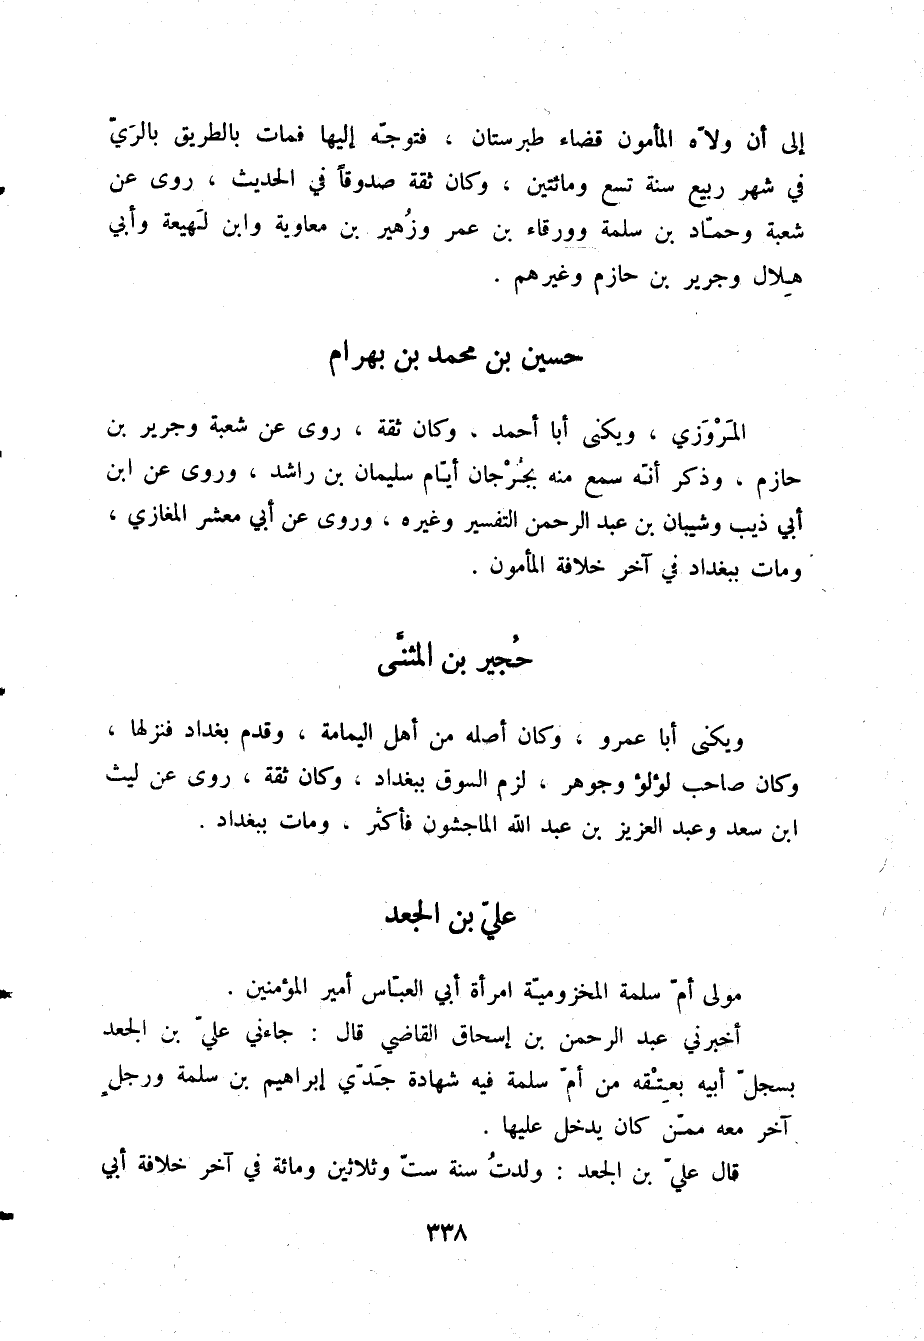 إلى أن ولاّه المأمون قضاء طبرستان ، فتوجّه إليها فمات بالطريق بالرَيّ
في شهر ربيع سنة تسع ومائتين ، وكان ثقة صدوقاً في الحديث ، روى عن
شعبة وحمّاد بن سلمة وورقاء بن عمر وزُهير بن معاوية وابن لَهيعة وأبي
هِلال وجرير بن حازم وغيرهم .
حسين بن محمد بن بهرام
المَرْوَزي ، ويكنى أبا أحمد . وكان ثقة ، روى عن شعبة وجرير بن
حازم ، وذكر أنّه سمع منه بجُرْجان أيّام سليمان بن راشد ، وروى عن ابن
أبي ذيب وشيبان بن عبد الرحمن التفسير وغيره ، وروى عن أبي معشر المغازي ،
ومات ببغداد في آخر خلافة المأمون .
حُجير بن المثنَّى
ويكنى أبا عمرو ، وكان أصله من أهل اليمامة ، وقدم بغداد فنزلها ،
وكان صاحب لؤلؤ وجوهر ، لزم السوق ببغداد ، وكان ثقة ، روى عن ليث
ابن سعد وعبد العزيز بن عبد الله الماجشون فأكثر . ومات ببغداد .
عليّ بن الجعد
مولى أمّ سلمة المخزوميّة امرأة أبي العبّاس أمير المؤمنين .
أخبرني عبد الرحمن بن إسحاق القاضي قال : جاءني عليّ بن الجعد
بسجلّ أبيه بعِتْقه من أمّ سلمة فيه شهادة جَدّي إبراهيم بن سلمة ورجلٍ
آخر معه ممّن كان يدخل عليها .
قال عليّ بن الجعد : ولدتُ سنة ستّ وثلاثين ومائة في آخر خلافة أبي
٣٣٨